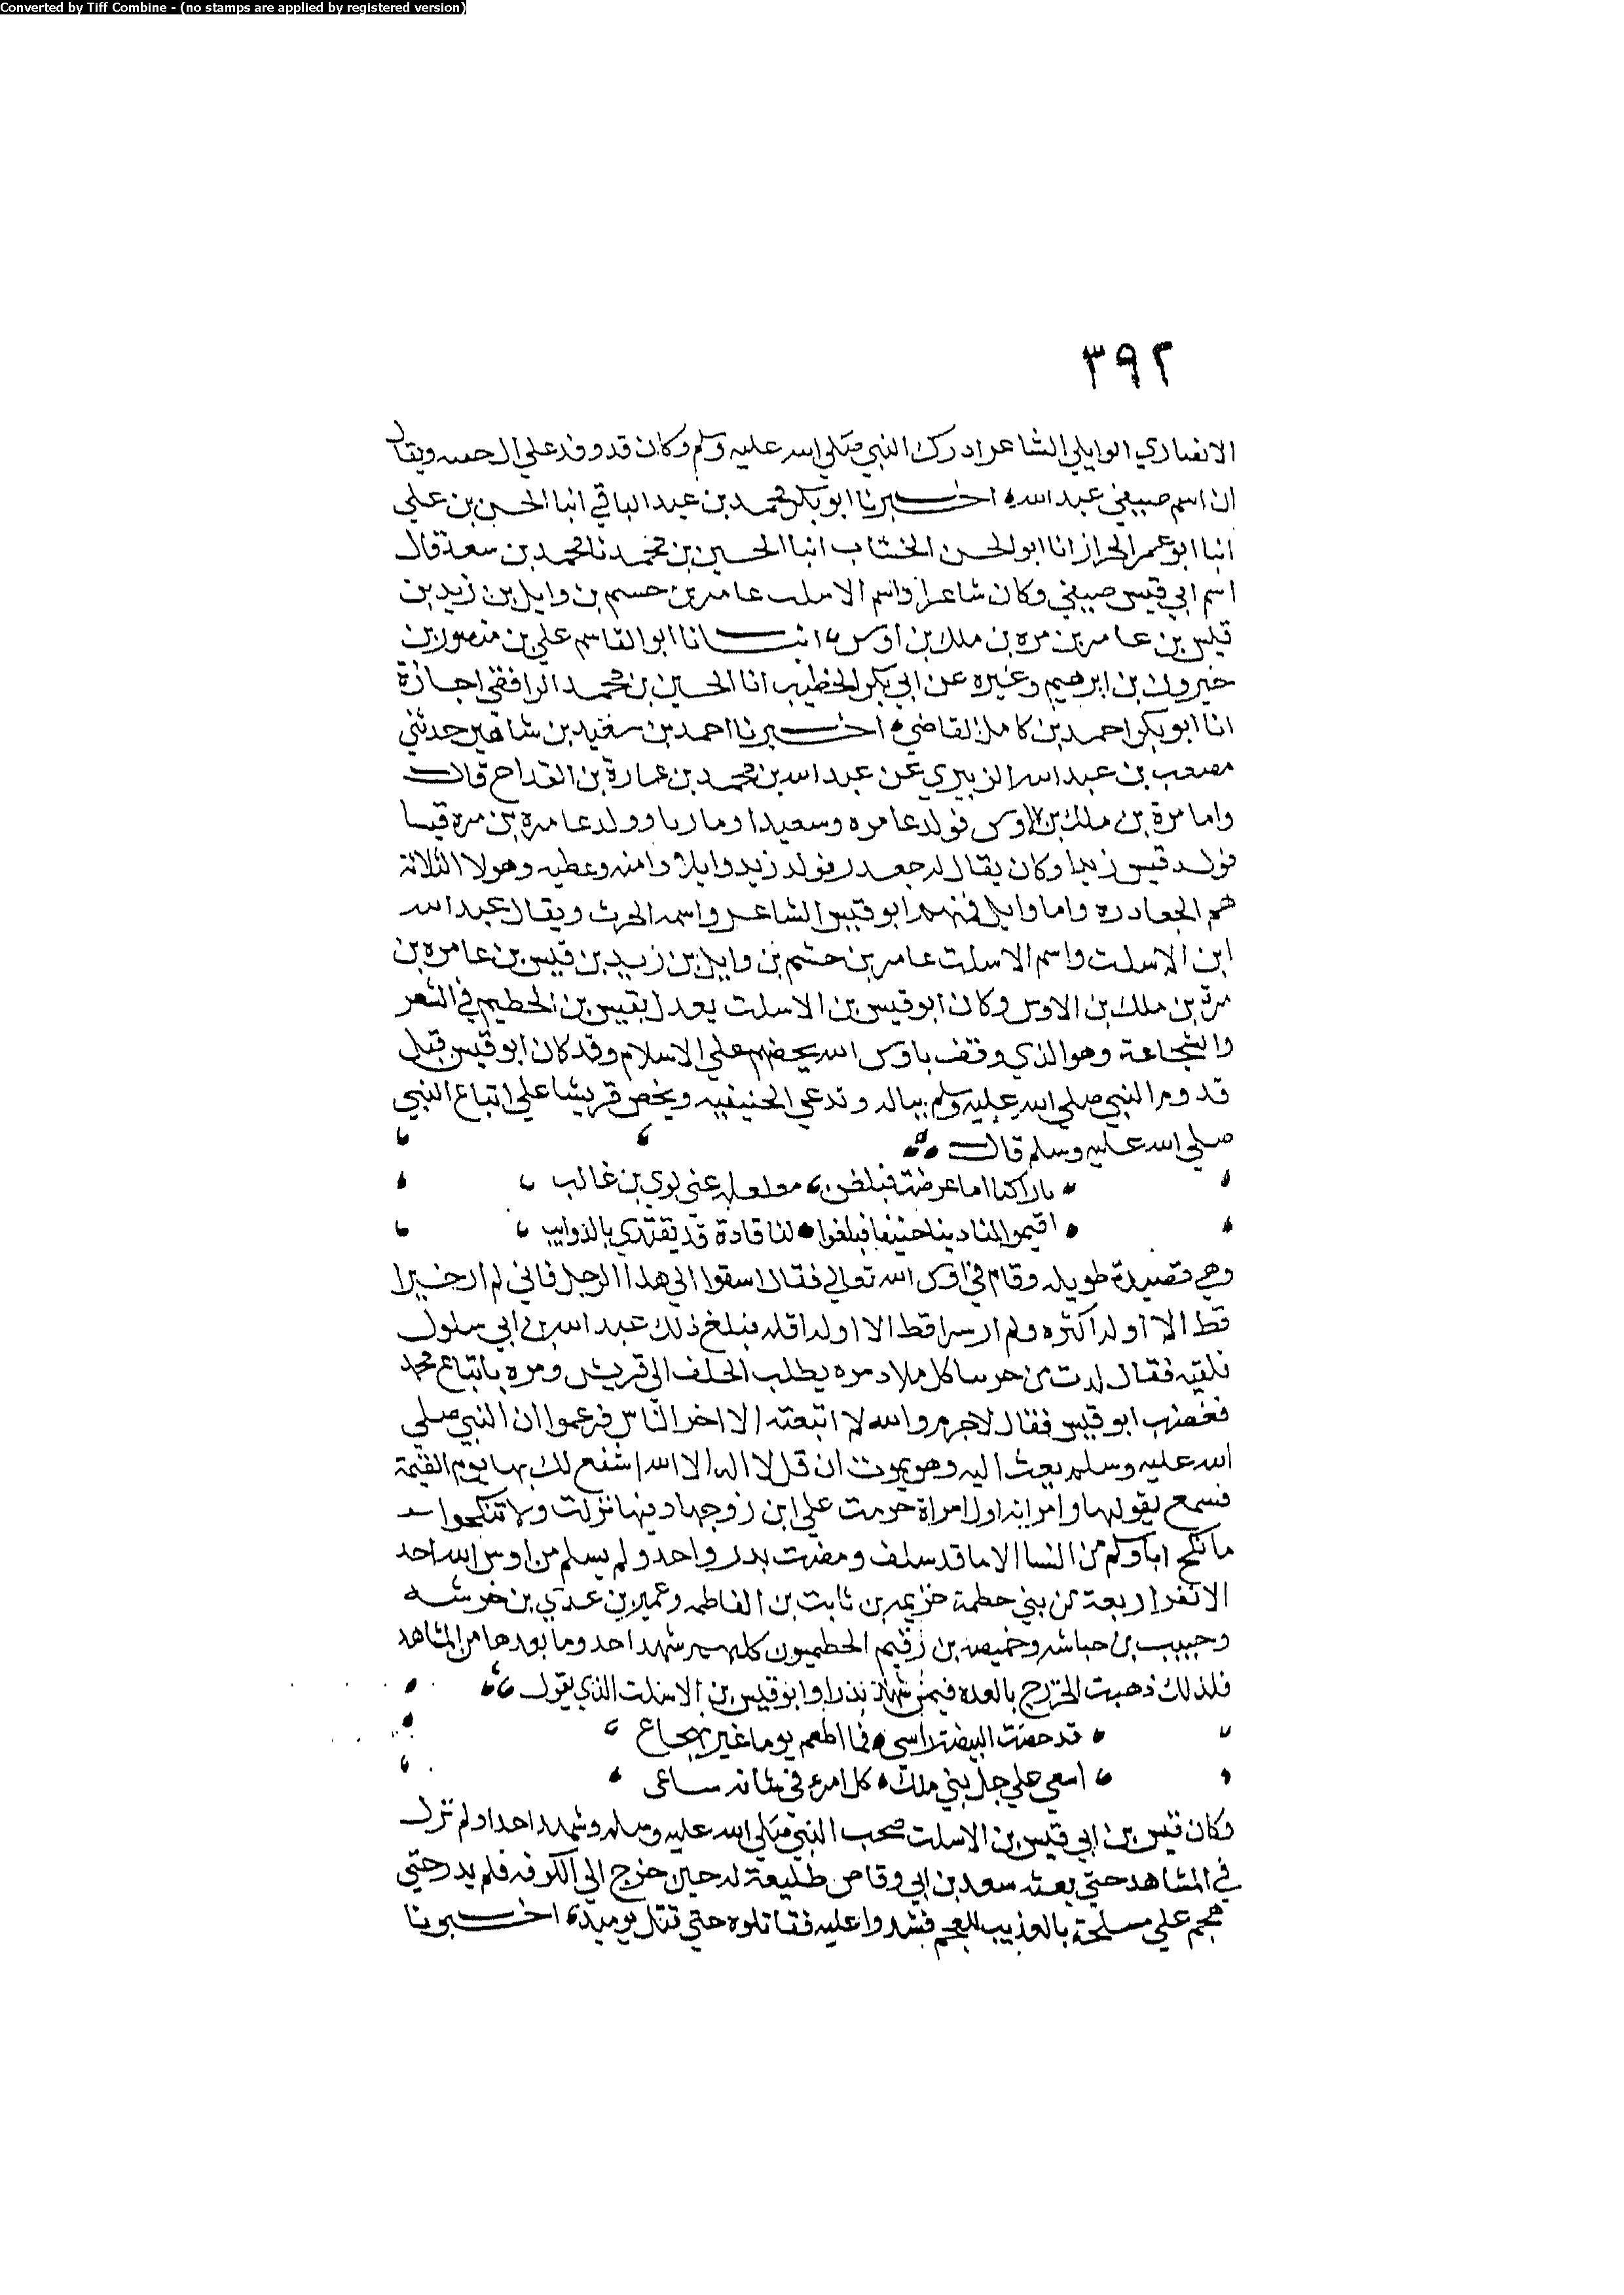 Converted by Tiff Combine - (no stamps are applied by registered version)
٣٩٢
الانصاري الوايلي الشاعر ادرك النبي صلي الله عليه وسلم وكان قد وفد علي ال ويقال
ان اسم صيفي عبد الله اخبرنا ابو بكر محمد بن عبد الباقي انبا الحسن بن علي
انبا ابو عمر الخراز انا ابو الحسن الخشاب انبا الحسين بن محمد نا محمد بن سعد قال
اسم ابي قيس صيفي وكان شاعرا واسم الاسلت عامر بن جسم بن وايل بن زيد بن
قيس بن عامر بن مره بن ملك بن اوس انبانا ابو القاسم علي بن منصور بن
خيرون بن ابرهيم وغيره عن ابي بكر الخطيب انا الحسين بن محمد الرافقي اجازة
انا ابو بكر احمد بن كامل القاضي اخبرنا احمد بن سعيد بن شاهين حدثني
مصعب بن عبد الله الزبيري عن عبد الله بن محمد بن عمارة بن القداح قال
واما مرة بن ملك بن الاوس فولد عامره وسعيدا ومازنا وولد عامرة بن مرة قيسا
فولد قيس زيدا وكان يقال له جعدر فولد زيد وايلا وامنه وعطيه وهولا الثلاثة
هم الجعادره واما وايل فمنهم ابو قيس الشاعر واسمه الحرث ويقال عبد الله
ابن الاسلت واسم الاسلت عامر بن حشم بن وايل بن زيد بن قيس بن عامره بن
مرة بن ملك بن الاوس وكان ابو قيس بن الاسلت يعدل بقيس بن الخطيم في الشعر
والشجاعة وهو الذي وقف باوس الله يحضهم علي الاسلام وقد كان ابو قيس قبل
قدوم النبي صلي الله عليه وسلم يتاله وتدعي الحنيفيه ويحض قريشا علي اتباع النبي
صلي الله عليه وسلم قال
يا راكبا اما عرضت فبلغن مغلغله عني لوي بن غالب
اقيموا لنا دينا حنيفا فبلغوا لنا قادة قد يقتدي بالذوايب
وهي قصيدة طويله وقام في اوس الله تعالي فقال اسقوا الي هذا الرجل فاني لم ار خيرا
قط الا اوله اكثره ولم ار سرا قط الا اوله اقله فبلغ ذلك عبد الله بن ابي سلول
فلقيه فقال لدت من حربنا كل ملاد مره يطلب الحلف الي قريش ومره باتباع محمد
فغضب ابو قيس فقال لا جرم والله لا اتبعته الا اخر الناس فزعموا ان النبي صلي
الله عليه وسلم بعث اليه وهو يموت ان قل لا اله الا الله اشفع لك بها يوم القيمة
فسمع يقولها وامراته اول امراة حرمت علي ابن زوجها وفيها نزلت ولا تنكحوا
ما نكح اباوكم من النسا الا ما قد سلف ومضت بدر واحد ولم يسلم من اوس الله احد
الا نفر اربعة من بني خطمة خزيمه بن ثابت بن الفاطمه وعمير بن عدي بن خرشه
وحبيب بن حباشه وخميصه بن رقيم الخطميون كلهم شهد احد وما بعدها من المشاهد
فلذلك ذهبت الخزرج بالعده فيمن شهد بدرا وابو قيس بن الاسلت الذي يقول
قد حصت البيضة راسي فما اطعم يوما غير تهجاع
اسعي علي جل بني ملك كل امرء في شانه ساعي
وكان قيس بن ابي قيس بن الاسلت صحب النبي صلي الله عليه وسلم وشهد احدا ولم تزل
في المشاهد حتي بعثه سعد بن ابي وقاص طليعة له حين خرج الي الكوفه فلم يدر حتي
هجم علي مسلحة بالعذيب للعجم فشدوا عليه فقاتلوه حتي قتل يوميذ اخبرنا